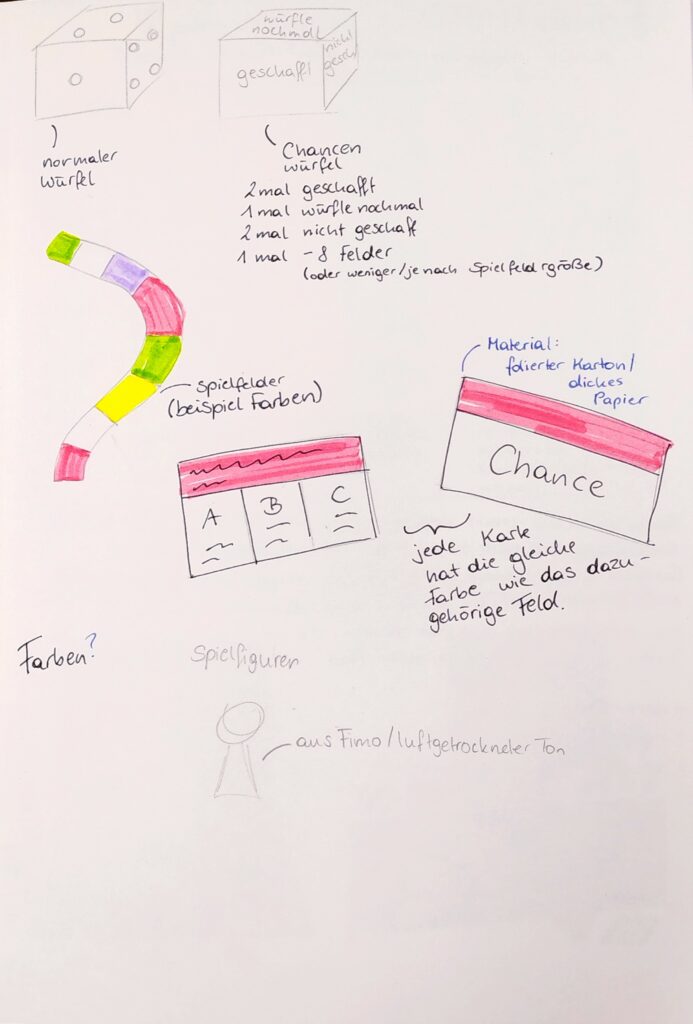 würfle
nochmal
geschafft
nicht
gesch
normaler
Würfel
Chancen
würfel
2mal geschafft
1mal würfle nochmal
2mal nicht geschaff
1mal -8 Felder
(oder weniger/je nach Spielfeldrgröße)
Spielfelder
(beispiel Farben)
Material:
folierter Karton/
dickes
Papier
Chance
A B C
jede Karte
hat die gleiche
Farbe wie das dazu-
gehörige Feld.
Farben?
Spielfiguren
aus Fimo/luftgetrockneter Ton